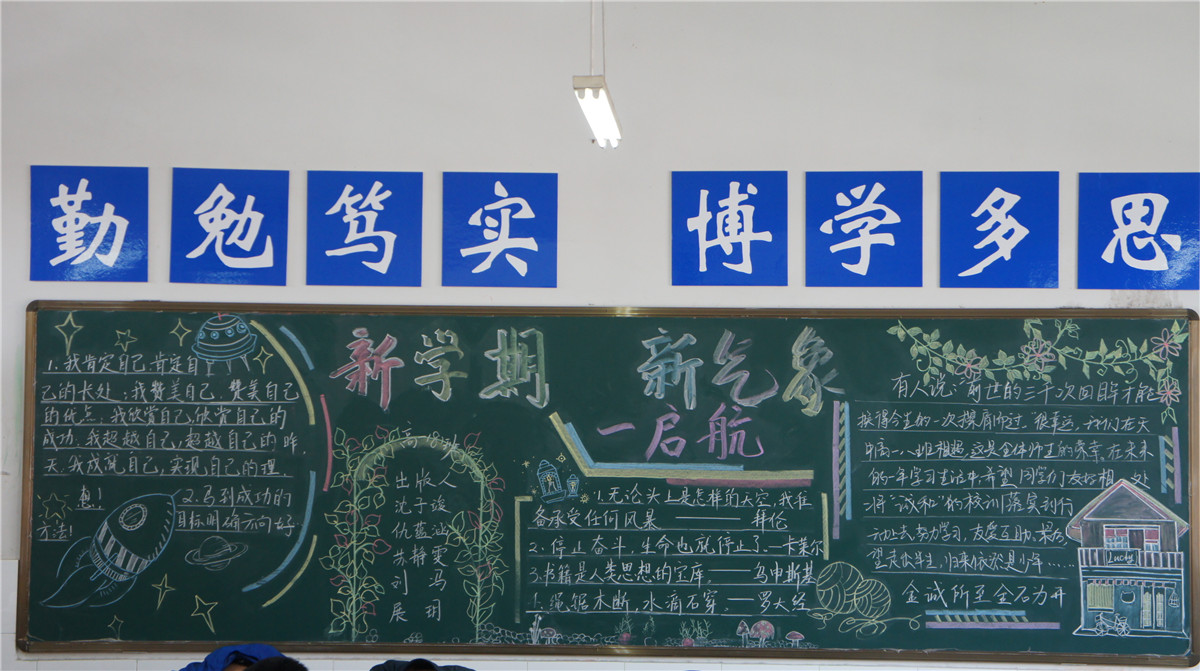 勤勉笃实 博学多思
新学期 新气象
一启航
1.我肯定自己,肯定自
己的长处,我赞美自己,赞美自己
的优点,我欣赏自己,欣赏自己的
成功,我超越自己,超越自己的昨
天,我成就自己,实现自己的理
想!
2.看到成功的
目标明确方向好
方法!
出版人
沈子设
仇蕴涵
苏静雯
刘 马
展 玥
1.无论头上是怎样的天空,我准
备承受任何风暴 —— 拜伦
2.停止奋斗,生命也就停止了.—卡莱尔
3.书籍是人类思想的宝库,——乌申斯基
4.绳锯木断,水滴石穿,—罗大经
有人说:“前世的三千次回眸才能
换得今生的一次擦肩而过.”很幸运,我们在天
中高一八班相遇,这是全体师生的荣幸,在未来
的一年学习生活中,希望同学们友好相处
将“诚和”的校训落实到行
动上去,努力学习,友爱互助,最后
望走出半生,归来依然是少年......
金诚所至金石为开
Lucky